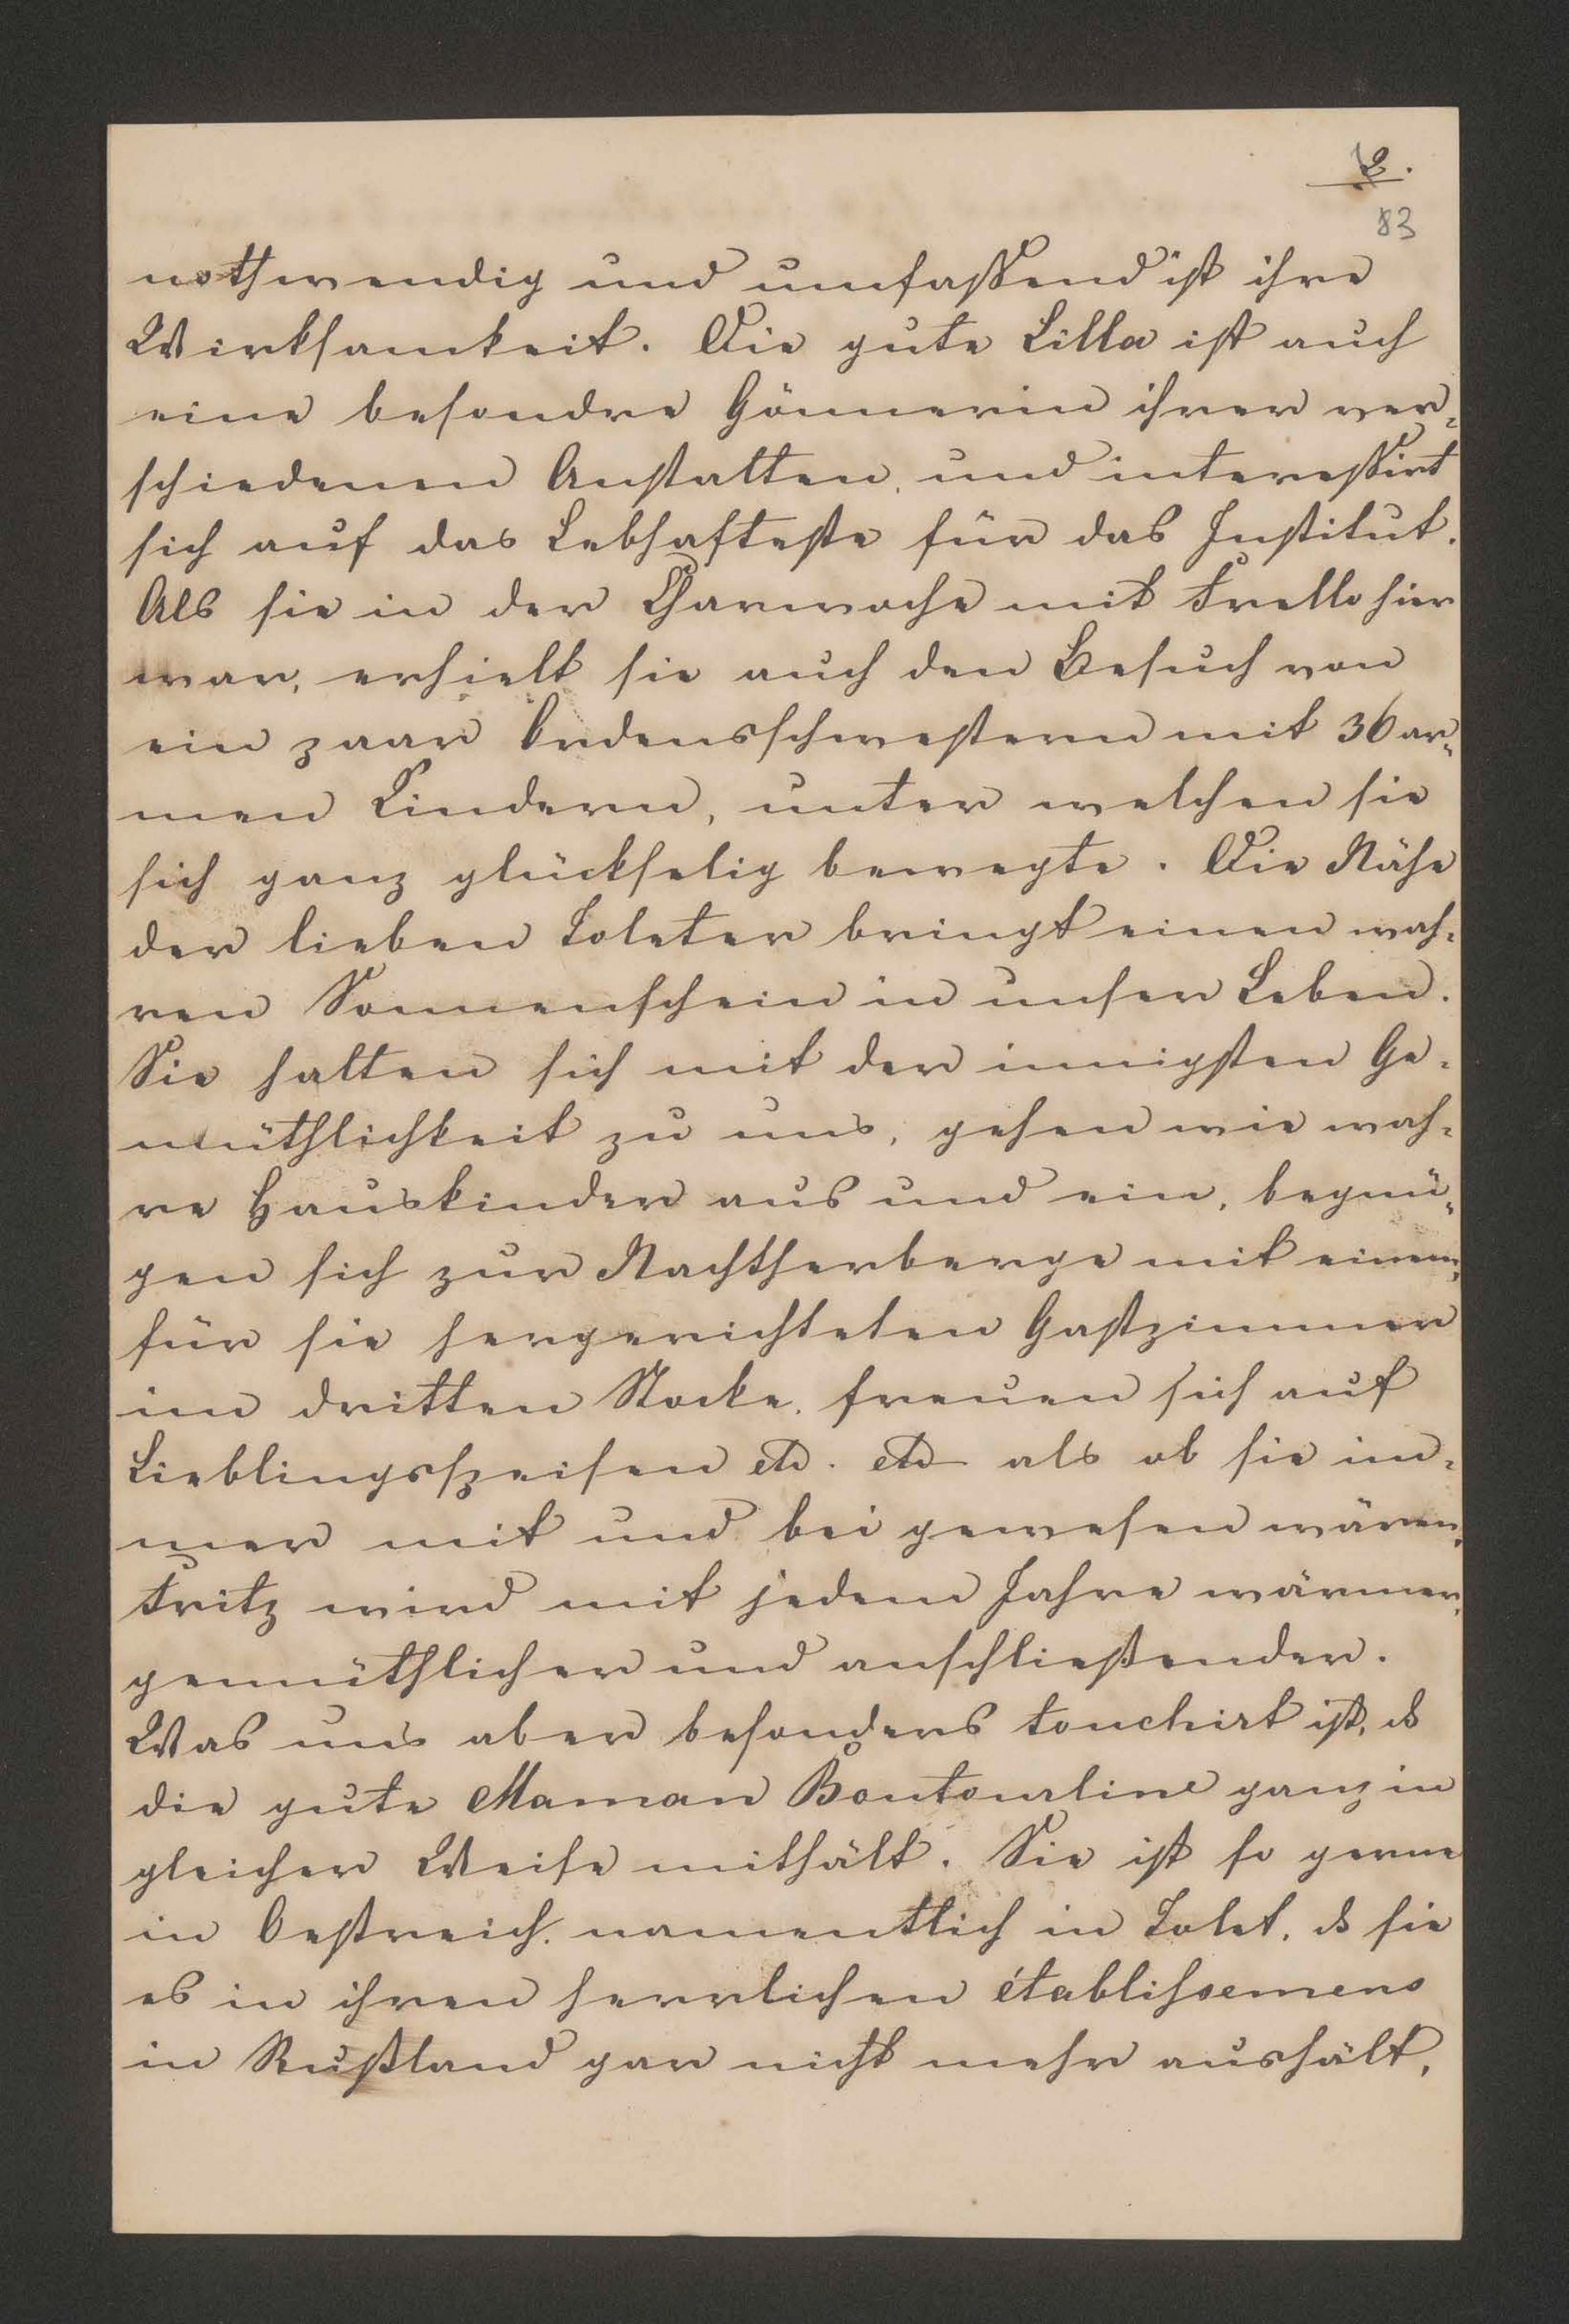 2.
83
nothwendig und umfassend ist ihre
Wirksamkeit. Die gute Lilla ist auch
eine besondre Gönnerin ihrer ver-
schiedenen Anstalten, und interessirt
sich auf das Lebhafteste für das Institut.
Als sie in der Charwoche mit Frello hier
war, erhielt sie auch den Besuch von
ein paar Ordensschwestern mit 36 ar-
men Kindern, unter welchen sie
sich ganz glückselig bewegte. Die Nähe
der lieben Toleter bringt einen wah-
ren Sonnenschein in unser Leben.
Sie halten sich mit der innigsten Ge-
müthlichkeit zu uns, gehen wie wah-
re Hauskinder aus und ein, begnü-
gen sich zur Nachtherberge mit einem,
für sie hergerichteten Gastzimmer
im dritten Stocke, freuen sich auf
Lieblingsspeisen etc. etc als ob sie im-
mer mit und bei gewesen wären.
Fritz wird mit jedem Jahre wärmer,
gemüthlicher und anschließender.
Was uns aber besonders touchirt ist, ds
die gute Maman Boutourline ganz in
gleicher Weise mithält. Sie ist so gerne
in Oestreich, namentlich in Tolet, ds sie
es in ihren herrlichen établissemens
in Rußland gar nicht mehr aushält,